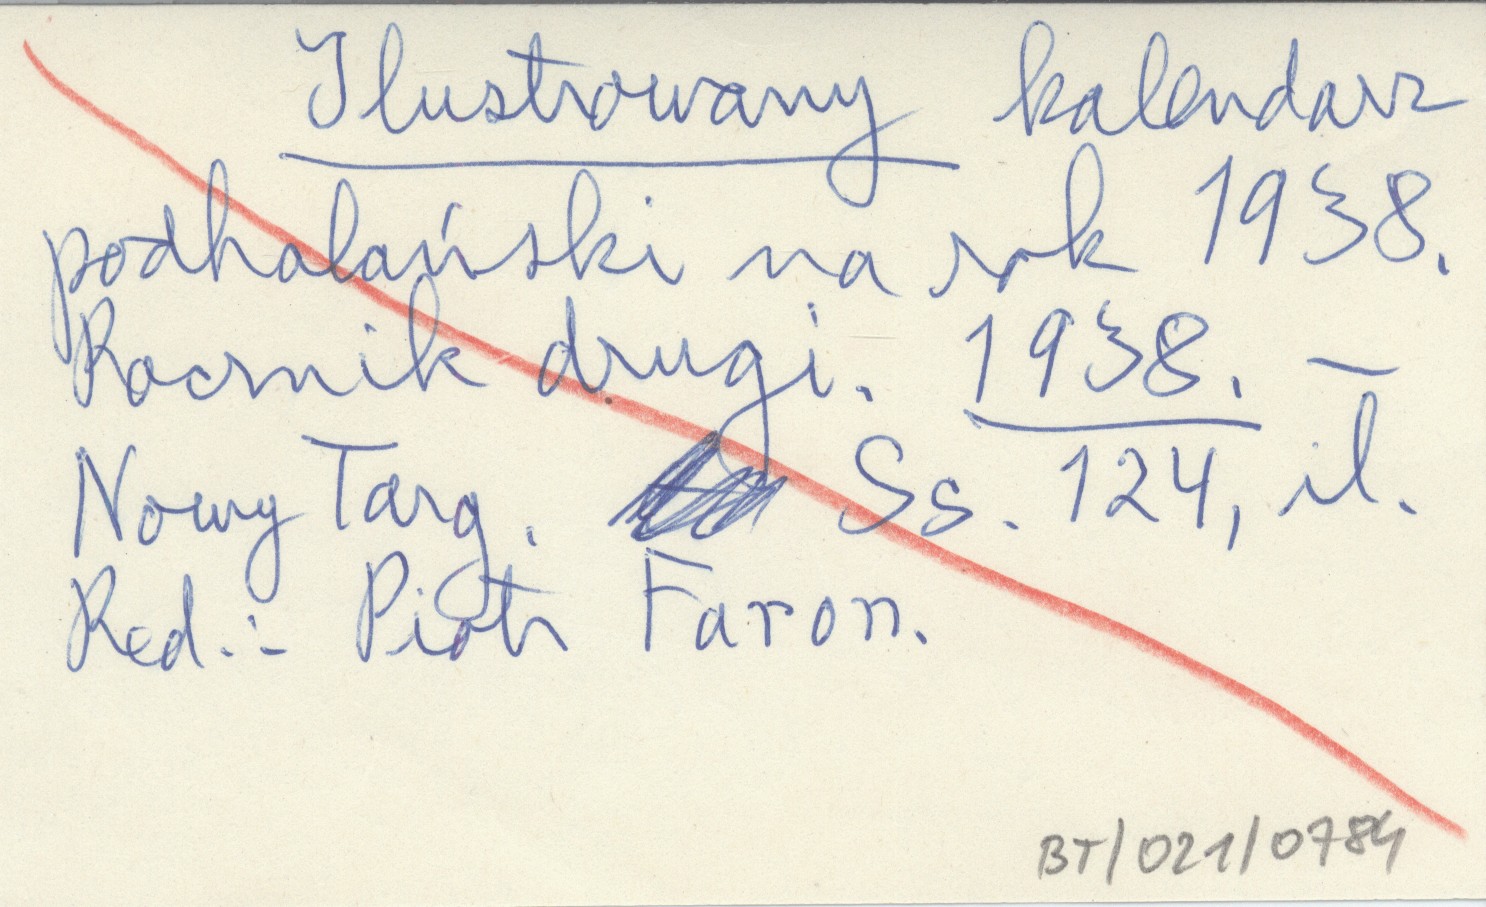 Ilustrowany kalendarz
podhalański na rok 1938.
Rocznik drugi. 1938. –
Nowy Targ. Ss. 124, il.
Red.: Piotr Faron.
BT/021/0784